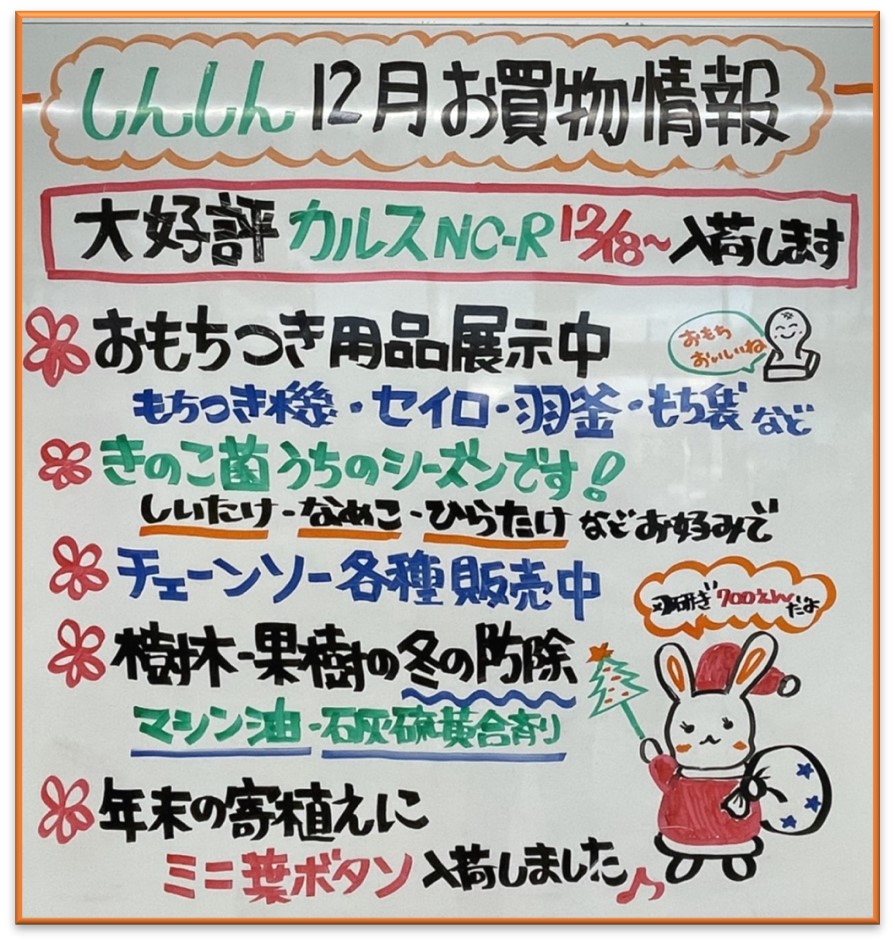 しんしん12月お買物情報
大好評 カルスNC-R 12/18~入荷します
おもちつき用品展示中
おもち
おいしいね
もちつき機・セイロ・羽釜・もち袋 など
きのこ菌うちのシーズンです!
しいたけ・なめこ・ひらたけ などお好みで
チェーンソー各種販売中
刃研ぎ 700えんだよ
樹木・果樹の冬の防除
マシン油・石灰硫黄合剤
年末の寄植えに
ミニ葉ボタン 入荷しました♪